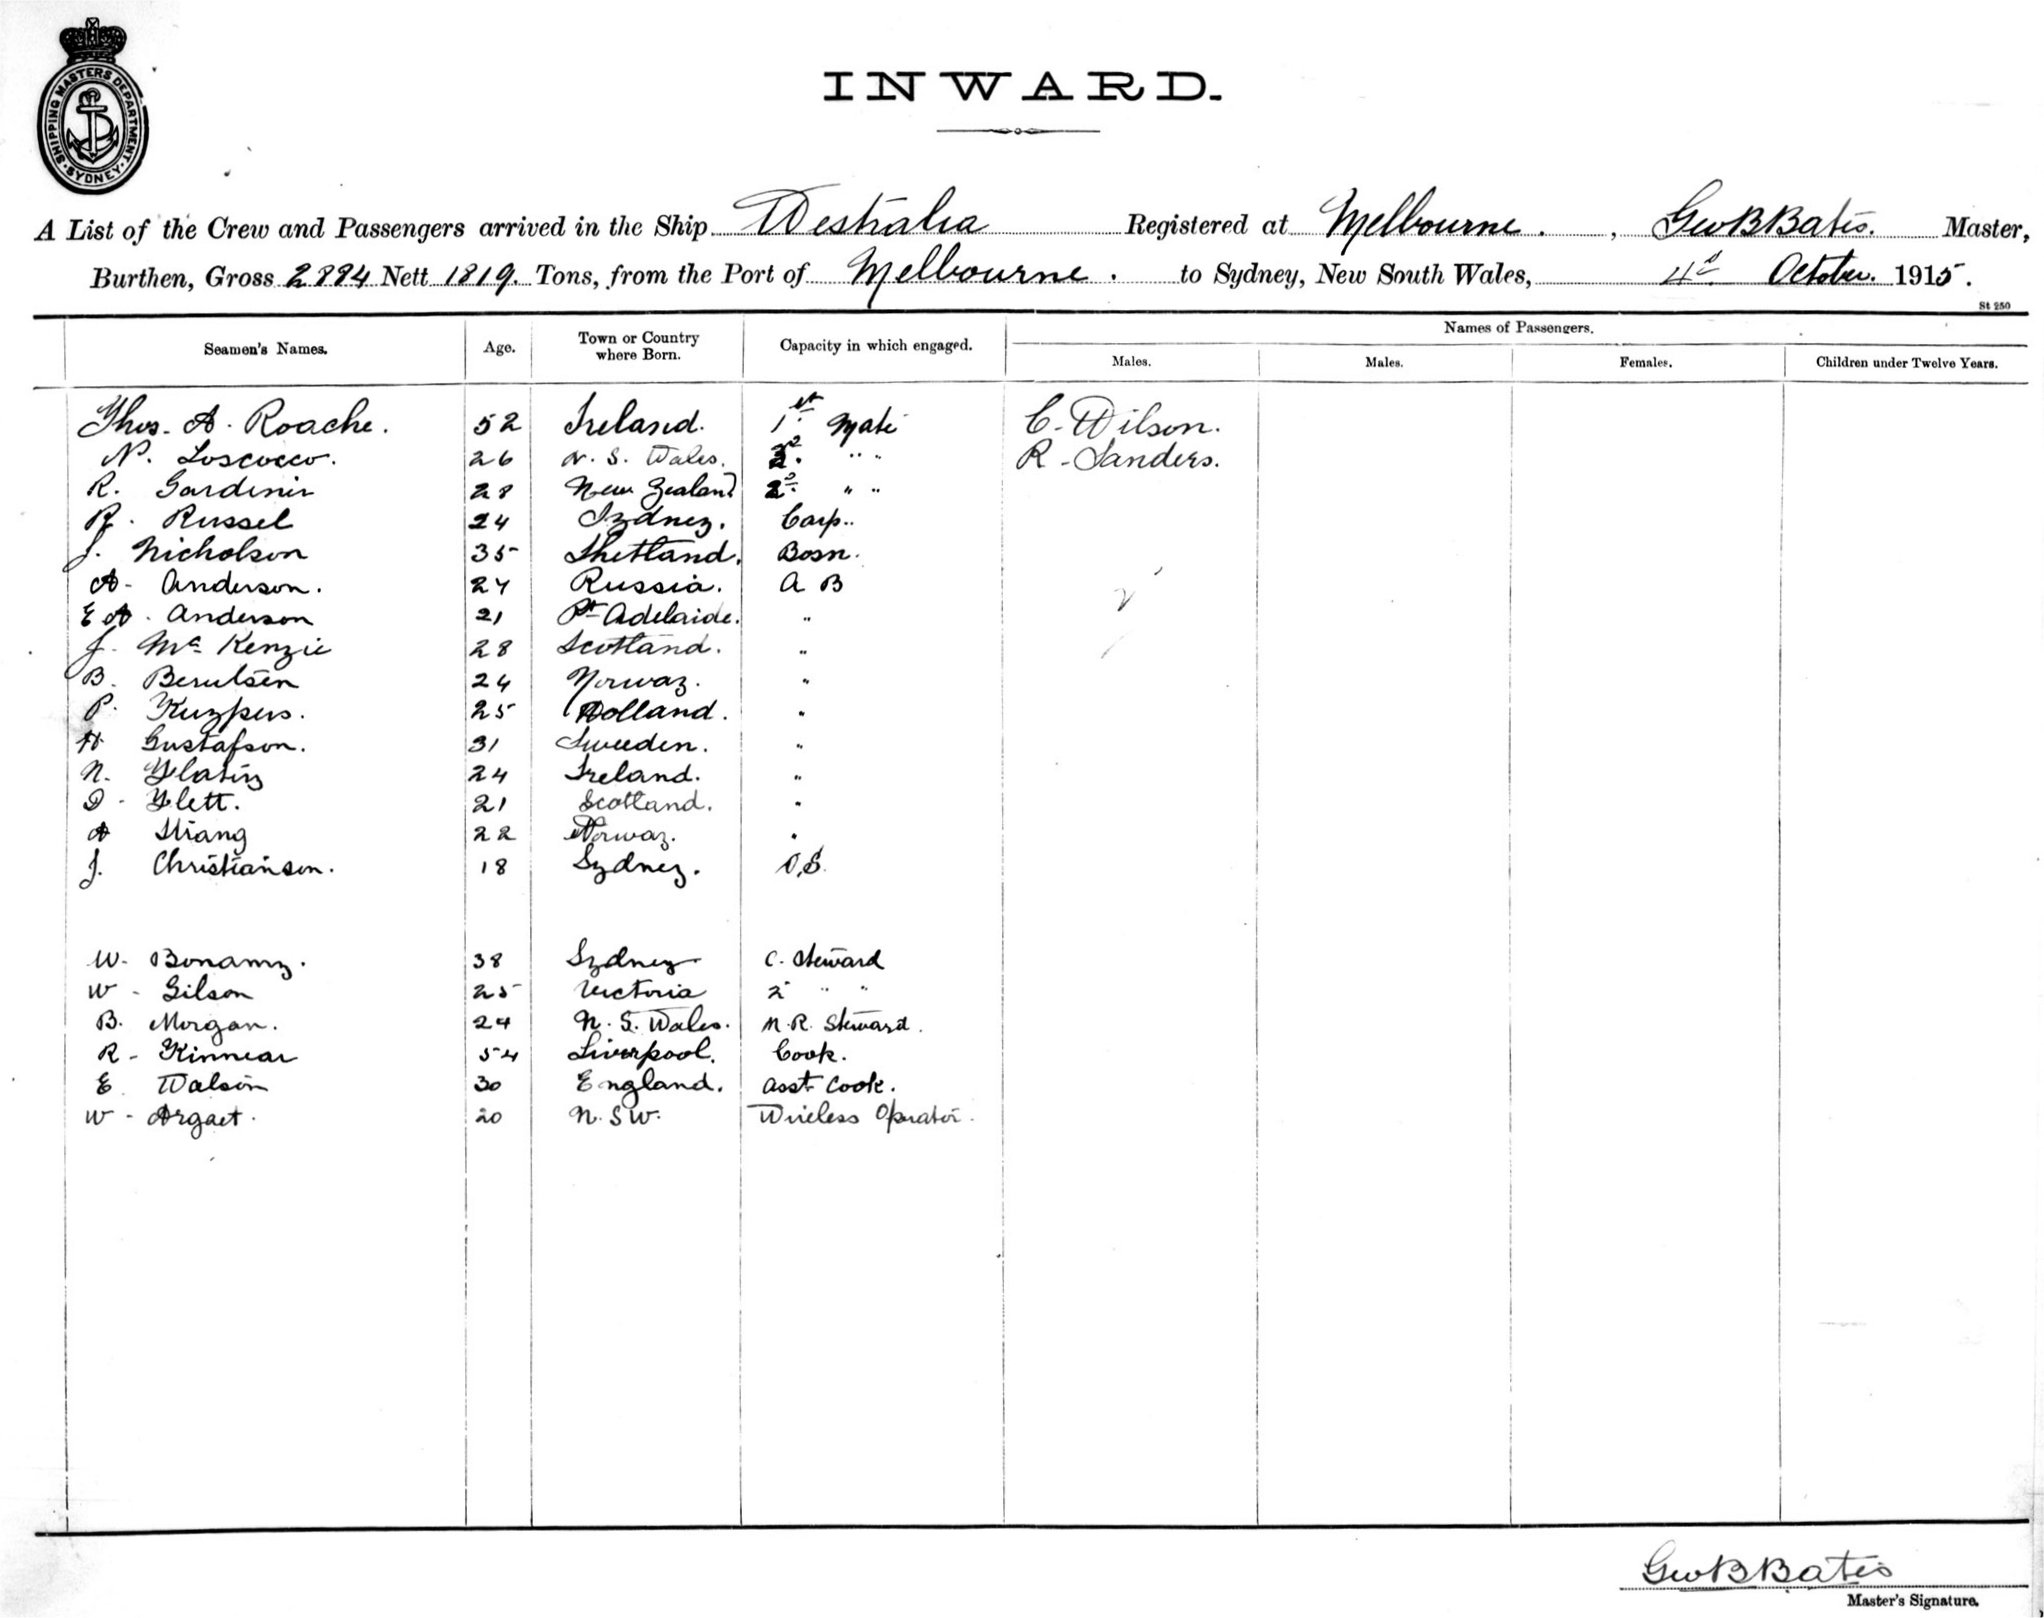 SHIPPING MASTERS DEPARTMENT
SYDNEY
INWARD.
A List of the Crew and Passengers arrived in the Ship Westralia Registered at Melbourne. , Geo B Bates. Master,
Burthen, Gross 2884 Nett 1819. Tons, from the Port of Melbourne. to Sydney, New South Wales, 4th October. 1915.
St 250
Seamen's Names. Age. Town or Country where Born. Capacity in which engaged. Names of Passengers.
Males. Males. Females. Children under Twelve Years.
Thos. A. Roache. 52 Ireland. 1st Mate C. Wilson.
N. Loscocco. 26 N. S. Wales. " " R. Sanders.
R. Gardiner 28 New Zealand " "
R. Russel 24 Sydney. Carp..
J. Nicholson 35 Shetland. Bosn.
A. Anderson. 27 Russia. A B
E A. Anderson 21 Pt Adelaide. "
J. McKenzie 28 Scotland. "
B. Berntsen 24 Norway. "
P. Kuypers. 25 Holland. "
H Gustafson. 31 Sweeden. "
N. 24 Ireland. "
D. Flett. 21 Scotland. "
A 22 Norway. "
J. Christianson. 18 Sydney. O.S.
W. Bonamy. 38 Sydney C. Steward
W. Gilson 25 Victoria 2 " "
B. Morgan. 24 N. S. Wales. M.R. Steward.
R. Kinnear 54 Liverpool. Cook.
E. 30 England. Asst Cook.
W. Argaet. 20 N. S W. Wireless Operator.
Geo B Bates
Master's Signature.